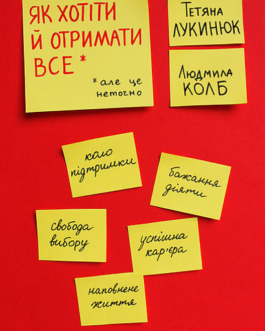 ЯК ХОТІТИ
Й ОТРИМАТИ
ВСЕ*
*але це
неточно
Тетяна
ЛУКИНЮК
Людмила
КОЛБ
коло
підтримки
бажання
діяти
свобода
вибору
успішна
кар'єра
наповнене
життя